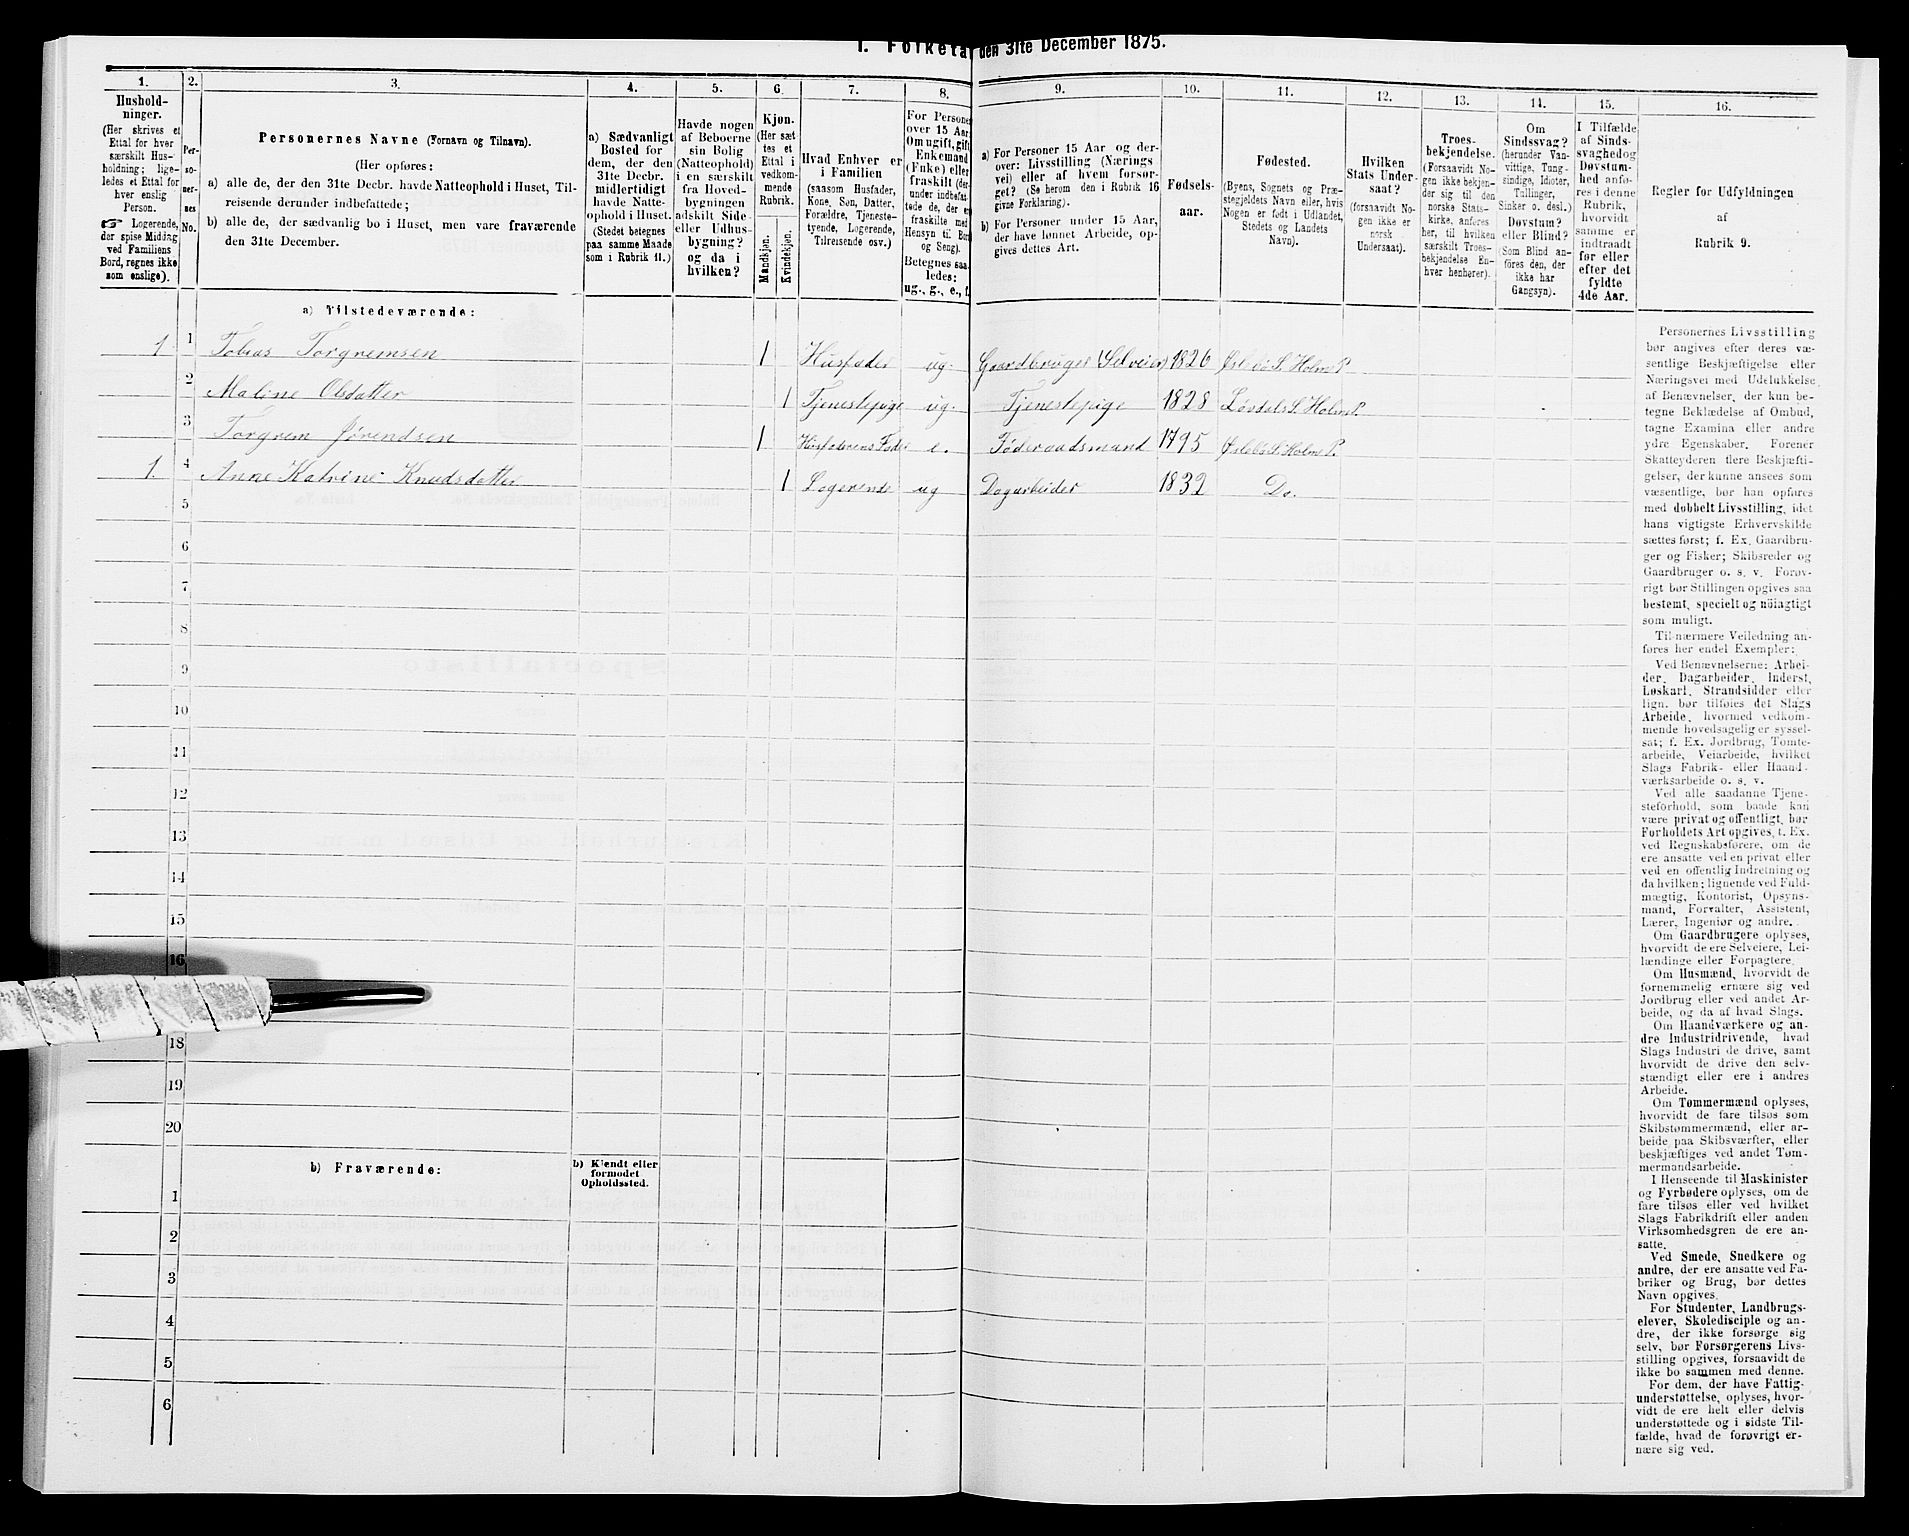 1. Folketæ den 31te December 1875.
1. 2. 3. 4. 5. 6. 7. 8. 9. 10. 11. 12. 13. 14. 15. 16.
Hushold-
ninger.
(Her skrives et
Ettal for hver
særskilt Hus-
holdning; lige-
ledes et Ettal for
hver enslig
Person.
☞ Logerende,
der spise Middag
ved Familiens
Bord, regnes ikke
som enslige).
Per-
so-
ner-
nes
No.
Personernes Navne (Fornavn og Tilnavn).
(Her opføres:
a) alle de, der den 31te Decbr. havde Natteophold i Huset, Til-
reisende derunder indbefattede;
b) alle de, der sædvanlig bo i Huset, men vare fraværende
den 31te December.
a) Sædvanligt
Bosted for
dem, der den
31te Decbr.
midlertidigt
havde Natte-
ophold i Huset.
(Stedet betegnes
paa samme Maade
som i Rubrik 11.)
Havde nogen
af Beboerne
sin Bolig
(Natteophold)
i en særskilt
fra Hoved-
bygningen
adskilt Side-
eller Udhus-
bygning?
og da i
hvilken?
Kjøn.
(Her sæt-
tes et
Ettal i
vedkom-
mende
Rubrik.
Mandkjøn.
Kvindekjøn.
Hvad Enhver er
i Familien
(saasom Husfader,
Kone, Søn, Datter,
Forældre, Tjeneste-
tyende, Logerende,
Tilreisende osv.)
For Personer
over 15 Aar:
Om ugift, gift,
Enkemand
(Enke) eller
fraskilt (der-
under indbefat-
tede de, der er
fraskilte med
Hensyn til Bord
og Seng).
Betegnes saa-
ledes:
ug., g., e., f.
a) For Personer 15 Aar og der-
over: Livsstilling (Nærings
vei) eller af hvem forsør-
get? (Se herom den i Rubrik 16
givne Forklaring).
b) For Personer under 15 Aar,
der have lønnet Arbeide, op-
gives dettes Art.
Fødsels-
aar.
Fødested.
(Byens, Sognets og Præ-
stegjeldets Navn eller, hvis
Nogen er født i Udlandet,
Stedets og Landets
Navn).
Hvilken
Stats Under-
saat?
(forsaavidt No-
gen ikke er
norsk
Undersaat).
Troes-
bekjendelse.
(Forsaavidt No-
gen ikke bekjen-
der sig til den
norske Stats-
kirke, anføres
her, til hvilken
særskilt Troes-
bekjendelse En-
hver henhører).
Om
Sindssvag?
(herunder Van-
vittige, Tung-
sindige, Idioter,
Tullinger,
Sinker o. desl.)
Døvstum?
eller Blind?
(Som Blind an-
føres den, der
ikke har
Gangsyn).
I Tilfælde
af Sinds-
svaghed og
Døvstum-
hed anfø-
res i denne
Rubrik,
hvorvidt
samme er
indtraadt
før eller
efter det
fyldte
4de Aar.
Regler for Udfyldningen
af
Rubrik 9.
a) Tilstedeværende:
1 1 Tobias Torgremsen 1 Husfader ug. Gaardbruger (Selveier) 1826 Øslebø S. Holm P.
2 Maline Olsdatter 1 Tjenestepige ug. Tjenestepige 1828 Løvdals S. Holm P.
3 Torgrem Jørendsen 1 Husfaderens Fader e. Føderaadsmand 1795 Øslebø S. Holm P.
1. 4 Anne Katrine Knudsdatter 1 Logerende ug Dagarbeider 1832 Do.
5
6
7
8
9
10
11
12
13
14
15
16
18
19
20
b) Fraværende:
b) Kjendt eller
formodet
Opholdssted.
1
2
3
4
5
6
Personernes Livsstilling
bør angives efter deres væ-
sentlige Beskjæftigelse eller
Næringsvei med Udelukkelse
af Benævnelser, der kun be-
tegne Beklædelse af Ombud,
tagne Examina eller andre
ydre Egenskaber. Forener
Skatteyderen flere Beskjæfti-
gelser, der kunne ansees som
væsentlige, bør han opføres
med dobbelt Livsstilling, idet
hans vigtigste Erhvervskilde
sættes først; f. Ex. Gaardbru-
ger og Fisker; Skibsreder og
Gaardbruger o. s. v. Forøv-
rigt bør Stillingen opgives saa
bestemt, specielt og nöiagtigt
som muligt.
Til nærmere Veiledning an-
føres her endel Exempler:
Ved Benævnelserne: Arbei-
der, Dagarbeider, Inderst,
Løskarl, Strandsidder eller
lign. bør tilføies det Slags
Arbeide, hvormed vedkom-
mende hovedsagelig er syssel-
sat; f. Ex. Jordbrug, Tomte-
arbeide, Veiarbeide, hvilket
Slags Fabrik- eller Haand-
værksarbeide o. s. v.
Ved alle saadanne Tjene-
steforhold, som baade kan
være privat og offentligt, bør
Forholdets Art opgives, t. Ex.
ved Regnskabsførere, om de
ere ansatte ved en privat eller
ved en offentlig Indretning og
da hvilken; lignende ved Fuld-
mægtig, Kontorist, Opsyns-
mand, Forvalter, Assistent,
Lærer, Ingeniør og andre.
Om Gaardbrugere oplyses,
hvorvidt de ere Selveiere, Lei-
lændinge eller Forpagtere.
Om Husmænd, hvorvidt de
fornemmelig ernære sig ved
Jordbrug eller ved andet Ar-
beide, og da af hvad Slags.
Om Haandværkere og an-
dre Industridrivende, hvad
Slags Industri de drive, samt
hvorvidt de drive den selv-
stændigt eller ere i andres
Arbeide.
Om Tømmermænd oplyses,
hvorvidt de fare tilsøs som
Skibstømmermænd, eller ar-
beide paa Skibsværfter, eller
beskjæftiges ved andet Tøm-
mermandsarbeide.
I Henseende til Maskinister
og Fyrbødere oplyses, om de
fare tilsøs eller ved hvilket
Slags Fabrikdrift eller anden
Virksomhedsgren de ere an-
satte.
Ved Smede, Snedkere og
andre, der ere ansatte ved Fa-
briker og Brug, bør dettes
Navn opgives.
For Studenter, Landbrugs-
elever, Skoledisciple og an-
dre, der ikke forsørge sig
selv, bør Forsørgerens Livs-
stilling opgives, forsaavidt de
ikke bo sammen med denne.
For dem, der have Fattig-
understøttelse, oplyses, hvor-
vidt de ere helt eller delvis
understøttede og i sidste Til-
fælde, hvad de forøvrigt er-
nære sig ved.